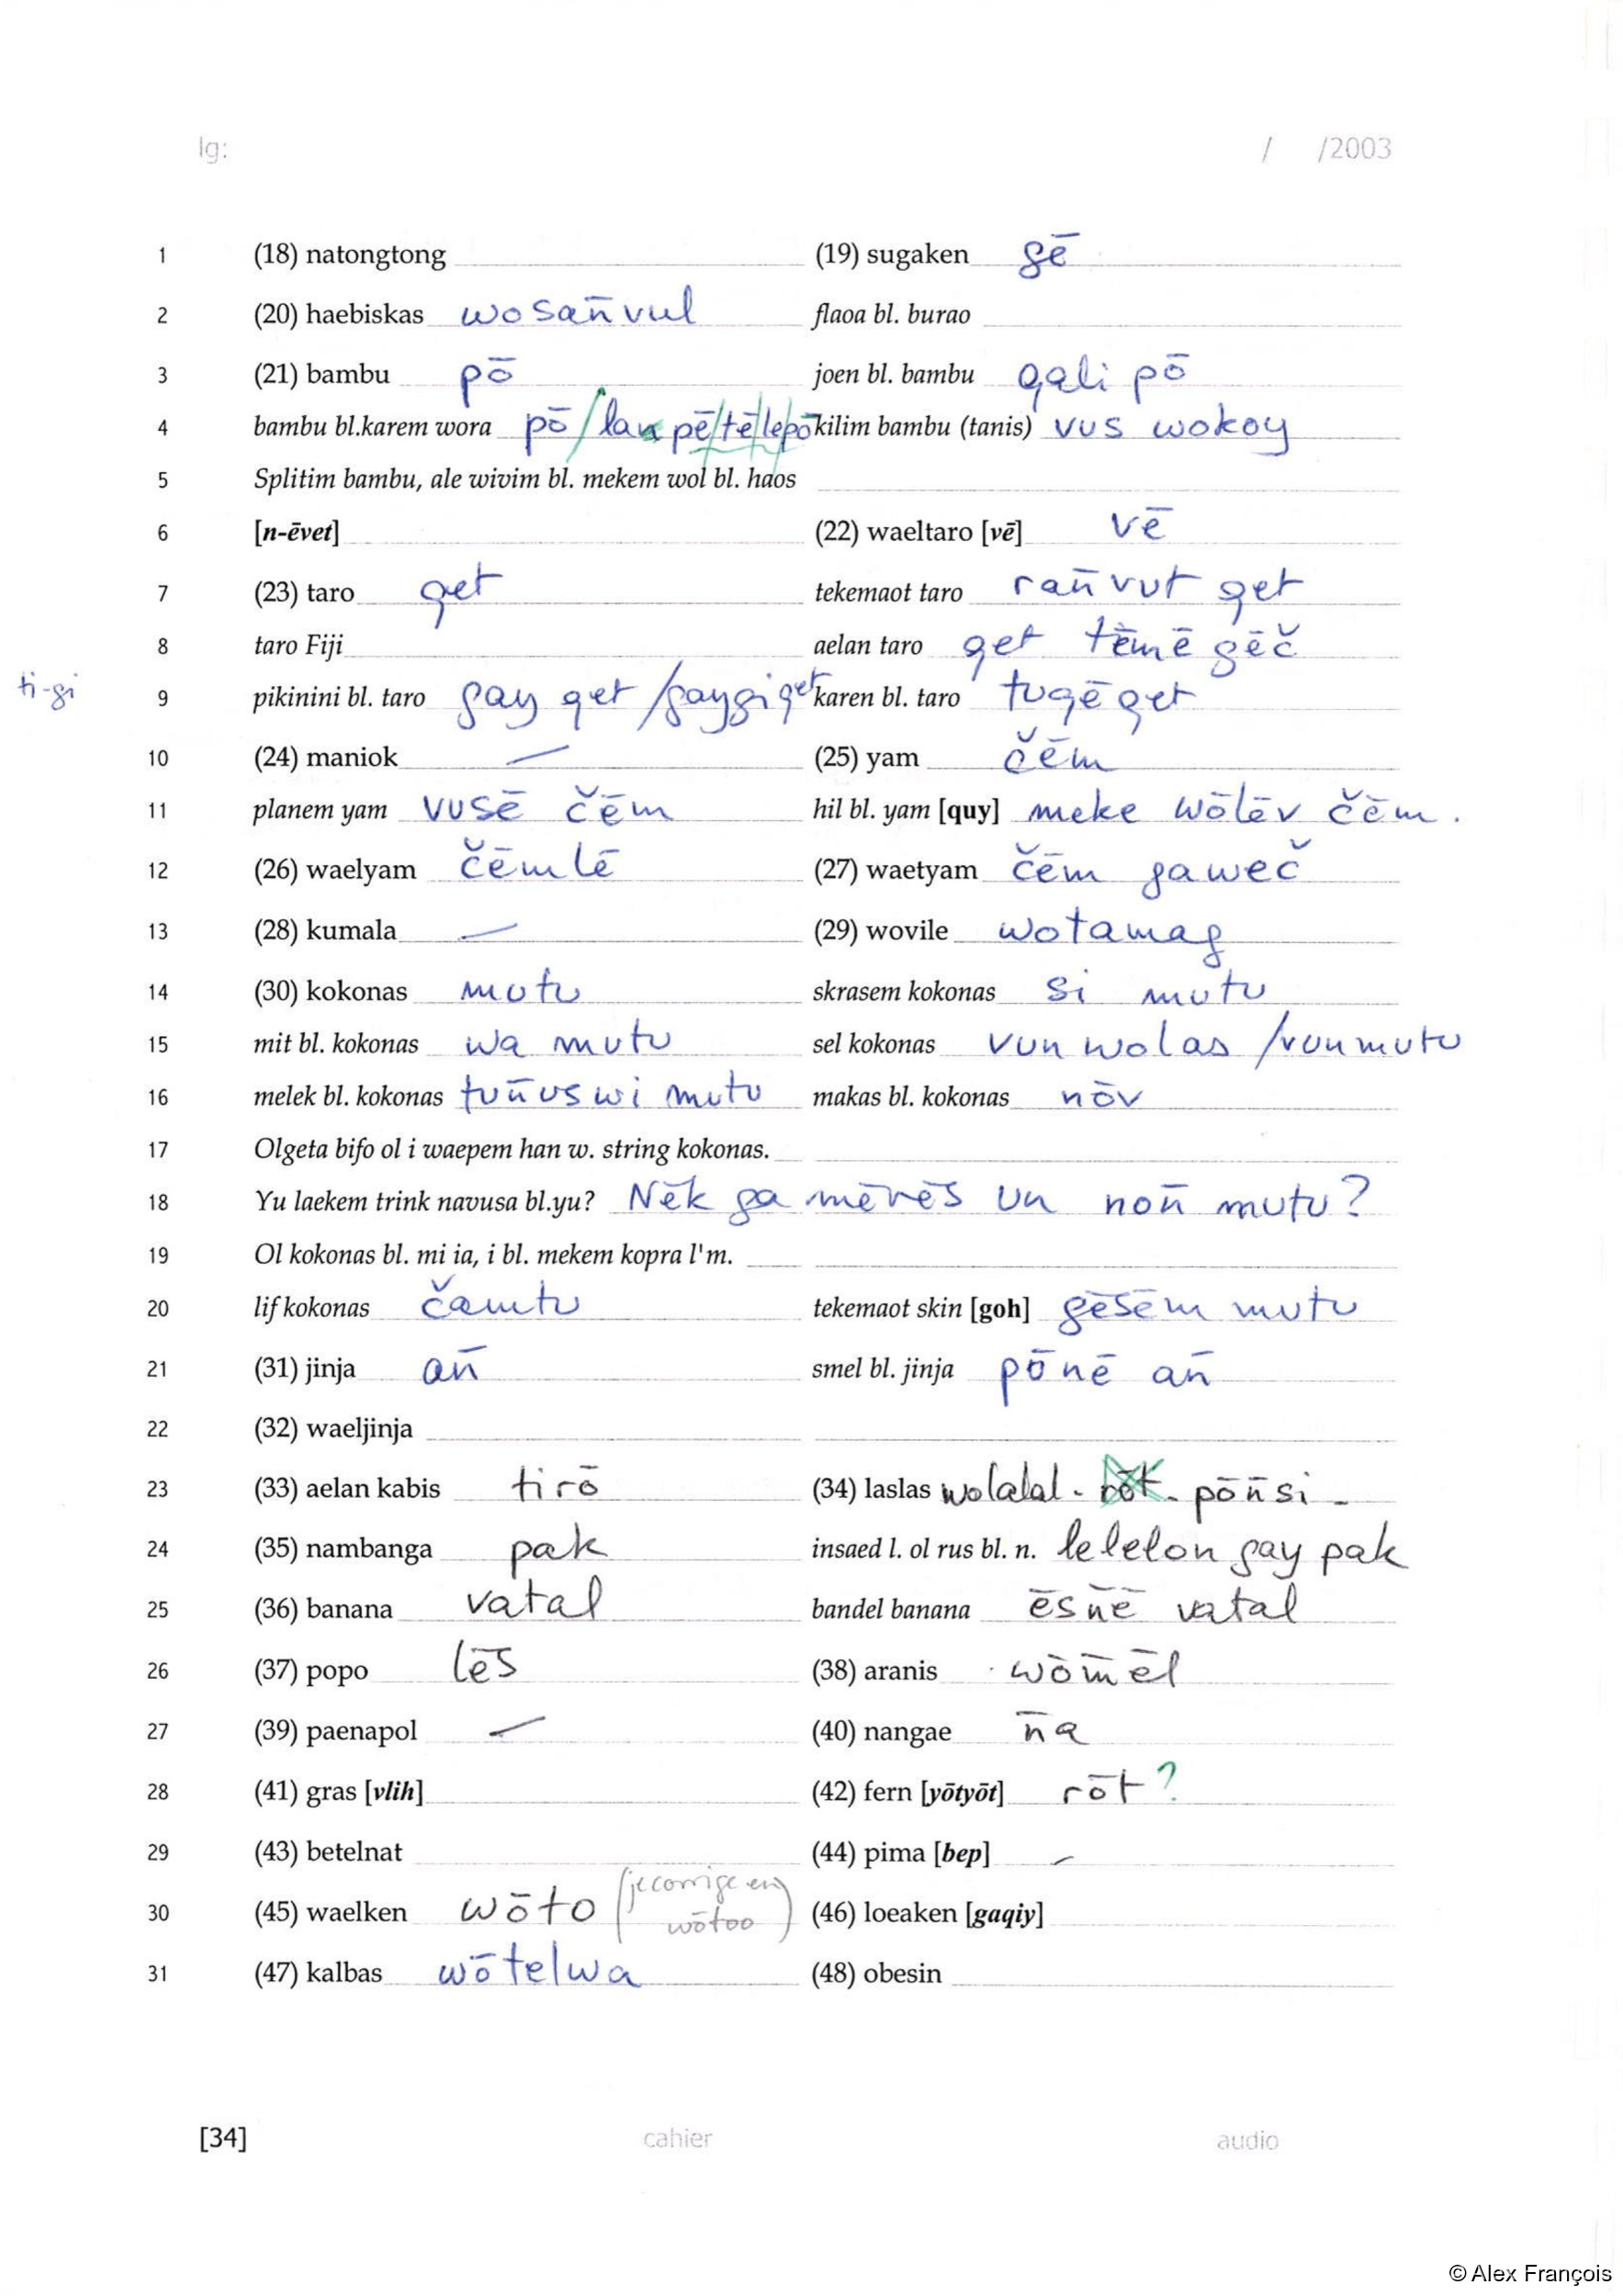 lg: / /2003
1 (18) natongtong (19) sugaken gē
2 (20) haebiskas wosan̄vul flaoa bl. burao
3 (21) bambu pō joen bl. bambu qali pō
4 bambu bl.karem wora pō / lan pē/tē/lepō kilim bambu (tanis) vus wokoy
5 Splitim bambu, ale wivim bl. mekem wol bl. haos
6 [n-ēvet] (22) waeltaro [vē] vē
7 (23) taro qet tekemaot taro ran̄vut qet
8 taro Fiji aelan taro qet tēmē gēč
ti-gi 9 pikinini bl. taro gay qet /gaygiqet karen bl. taro tuqē qet
10 (24) maniok — (25) yam čēm
11 planem yam vusē čēm hil bl. yam [quy] meke wōlēv čēm.
12 (26) waelyam čēmlē (27) waetyam čēm gaweč
13 (28) kumala — (29) wovile wotamag
14 (30) kokonas mutu skrasem kokonas si mutu
15 mit bl. kokonas wa mutu sel kokonas vun wolas /vunmutu
16 melek bl. kokonas tun̄us wi mutu makas bl. kokonas nōv
17 Olgeta bifo ol i waepem han w. string kokonas.
18 Yu laekem trink navusa bl.yu? Nēk ga mērēs un non̄ mutu?
19 Ol kokonas bl. mi ia, i bl. mekem kopra l'm.
20 lif kokonas čamtu tekemaot skin [goh] gēsēm mutu
21 (31) jinja an̄ smel bl. jinja pōnē an̄
22 (32) waeljinja
23 (33) aelan kabis tirō (34) laslas wolalal - rōt - pōn̄si -
24 (35) nambanga pak insaed l. ol rus bl. n. lelelon gay pak
25 (36) banana vatal bandel banana ēsn̄ē vatal
26 (37) popo lēs (38) aranis wōm̄ēl
27 (39) paenapol — (40) nangae n̄a
28 (41) gras [vlih] (42) fern [yōtyōt] rōt ?
29 (43) betelnat (44) pima [bep] —
30 (45) waelken wōto (je corrige en wōtoo) (46) loeaken [gaqiy]
31 (47) kalbas wōtelwa (48) obesin
[34] cahier audio
© Alex François